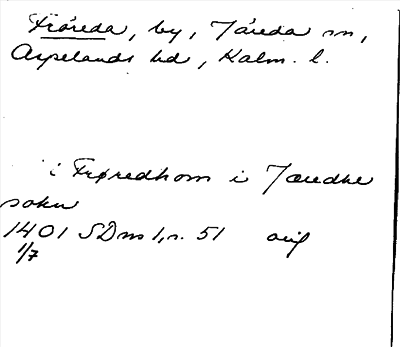 Fröreda, by, Järeda sn,
Aspelands hd, Kalm. l.
i Frøredhom i Jæredhe
sokn
1401 SDns 1, n. 51 orig
1/7